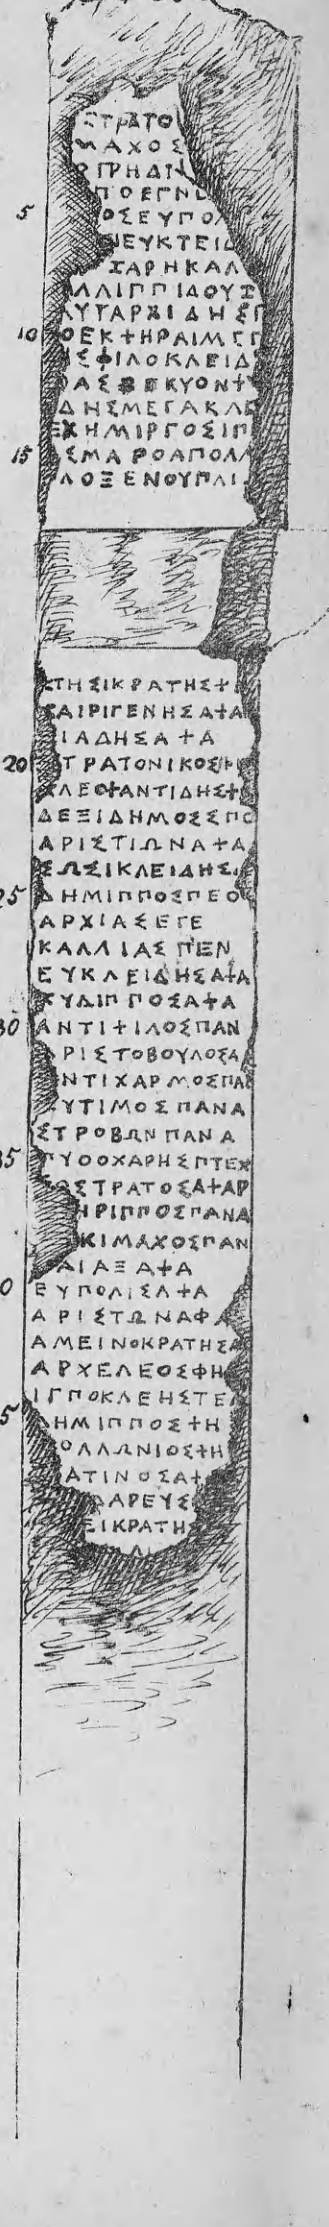 ΣΤΡΑΤΟ
ΜΑΧΟΣ
ΠΟΕΓΝ
5 ΟΣΕΥΠΟΛ
ΕΥΚΤΕΙΔ
ΧΑΡΗΚΑΛ
ΛΛΙΠΠΙΔΟΥ
ΛΥΤΑΡΧΙΔΗΣΓ
10 ΟΕΚ+ΗΡΑΙΜ
ΗΣΦΙΛΟΚΛΕΙΔ
ΔΗΣΜΕΓΑΚΛΕ
ΕΧΗΜΙΡΓΟΣΙΠ
15 ΣΜΑΡΟΑΠΟΛΛ
ΛΟΞΕΝΟΥΠΛΙ
ΚΤΗΣΙΚΡΑΤΗΣ+
ΧΑΙΡΙΓΕΝΗΣΑ+Α
ΙΑΔΗΣΑ+Α
20 ΣΤΡΑΤΟΝΙΚΟΣ
ΚΛΕΟ+ΑΝΤΙΔΗΣ+
ΔΕΞΙΔΗΜΟΣΣΠΟ
ΑΡΙΣΤΙΩΝΑ+Α
ΣΩΣΙΚΛΕΙΔΗΣ
25 ΔΗΜΙΠΠΟΣΠΕΟ
ΑΡΧΙΑΣΕΓΕ
ΚΑΛΛΙΑΣΠΕΝ
ΕΥΚΛΕΙΔΗΣΑ+Α
ΚΥΔΙΠΠΟΣΑ+Α
30 ΑΝΤΙ+ΙΛΟΣΠΑΝ
ΑΡΙΣΤΟΒΟΥΛΟΣΑ
ΑΝΤΙΧΑΡΜΟΣΠΑ
ΥΤΙΜΟΣΠΑΝΑ
ΣΤΡΟΒΩΝΠΑΝΑ
35 ΠΥΟΟΧΑΡΗΣΠΤΕΧ
ΣΤΡΑΤΟΣΑ+ΑΡ
ΗΡΙΠΠΟΣΠΑΝΑ
ΚΙΜΑΧΟΣΠΑΝ
ΑΙΑΞΑ+Α
0 ΕΥΠΟΛΙΣΑ+Α
ΑΡΙΣΤΩΝΑΦΑ
ΑΜΕΙΝΟΚΡΑΤΗΣΑ
ΑΡΧΕΛΕΟΣΦΗ
ΙΓΠΟΚΛΕΗΣΤΕ
5 ΔΗΜΙΠΠΟΣ+Η
ΟΛΛΩΝΙΟΣ+Η
ΑΤΙΝΟΣΑ+
ΔΑΡΕΥΣ
ΕΙΚΡΑΤΗΣ